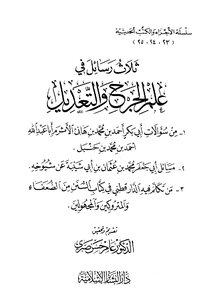 سلسلة الأجزاء والكتب الحديثية
(٢٣ - ٢٤ - ٢٥)
ثلاث رسائل في
علم الجرح والتعديل
١- من سؤالات أبي بكر أحمد بن محمد بن هانئ الأثرم أبا عبد الله
أحمد بن محمد بن حنبل.
٢- مسائل أبي جعفر محمد بن عثمان بن أبي شيبة عن شيوخه.
٣- من تكلم فيه الدارقطني في كتاب السنن من الضعفاء
والمتروكين والمجهولين.
تقديم وتحقيق
الدكتور عامر حسن صبري
دار البشائر الإسلامية